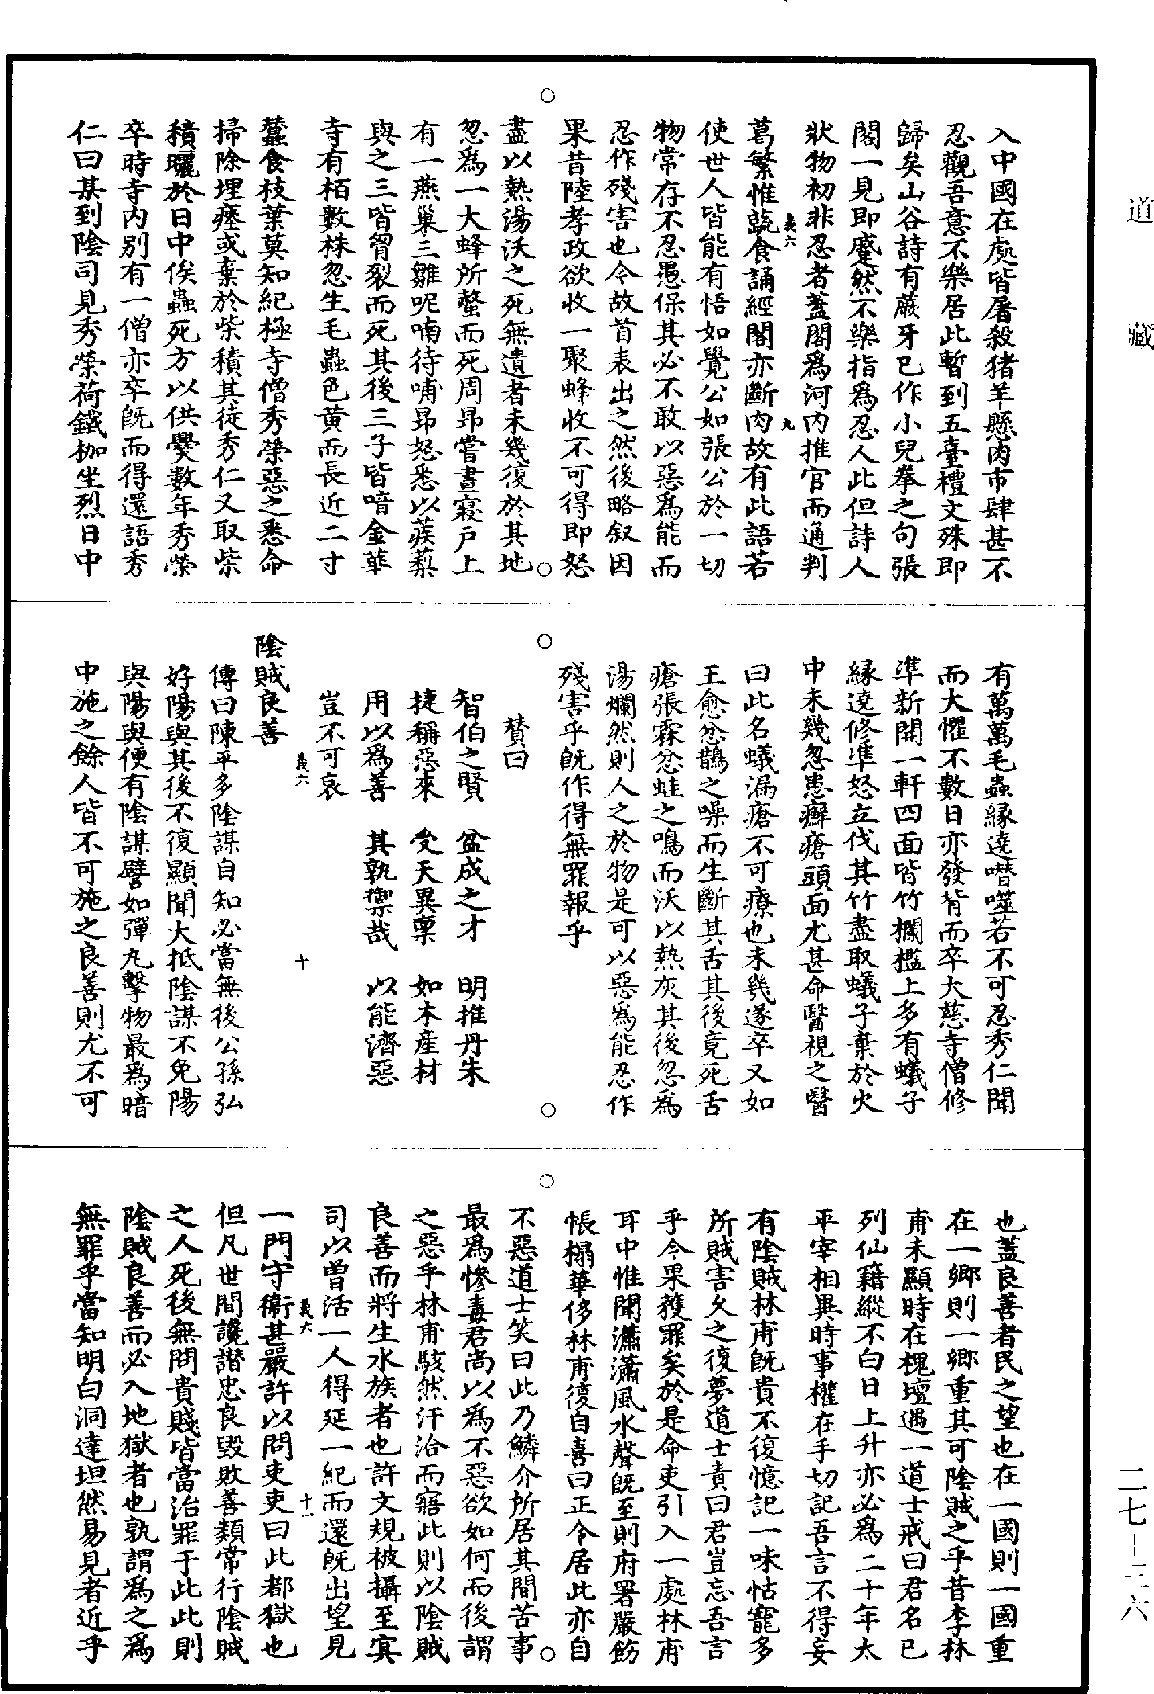 道藏
入中國在處皆屠殺猪羊懸肉市肆甚不
忍觀吾意不樂居此暫到五臺禮文殊即
歸矣山谷詩有厳牙已作小兒拳之句張
閣一見即蹙然不樂指為忍人此但詩人
狀物初非忍者蓋閣為河內推官而通判
義六
九
葛繁惟蔬食誦經閣亦斷肉故有此語若
使世人皆能有悟如覺公如張公於一切
物常存不忍愚保其必不敢以惡為能而
忍作殘害也令故首表出之然後略叙因
果昔陸孝政欲收一聚蜂收不可得即怒
盡以熱湯沃之死無遺者未幾復於其地
忽為一大蜂所螫而死周昂嘗晝寢戶上
有一燕巢三雛呢喃待哺昂怒悉以蒺蔾
與之三皆胷裂而死其後三子皆喑金華
寺有栢數株忽生毛蟲色黄而長近二寸
蠶食枝葉莫知紀極寺僧秀榮惡之悉命
掃除埋瘞或棄於柴積其徒秀仁又取柴
積曬於日中俟蟲死方以供爨數年秀榮
卒時寺內別有一僧亦卒既而得還語秀
仁曰某到陰司見秀榮荷鐵枷坐烈日中
有萬萬毛蟲緣遶噆噬若不可忍秀仁聞
而大懼不數日亦發背而卒大慈寺僧修
準新開一軒四面皆竹欄檻上多有蟻子
緣遶修準怒立伐其竹盡取蟻子棄於火
中未幾忽患癬瘡頭面尤甚命醫視之醫
曰此名蟻漏瘡不可療也未幾遂卒又如
王愈忿鵲之噪而生斷其舌其後竟死舌
瘡張霖忿蛙之鳴而沃以熱灰其後忽為
湯爛然則人之於物是可以惡為能忍作
殘害乎既作得無罪報乎
贊曰
智伯之賢　盆成之才　明推丹朱
捷稱惡來　受天異稟　如木產材
用以為善　其孰禦哉　以能濟惡
豈不可哀
義六
十
陰賊良善
傳曰陳平多陰謀自知必當無後公孫弘
好陽與其後不復顯聞大抵陰謀不免陽
與陽與便有陰謀譬如彈丸擊物最為暗
中施之餘人皆不可施之良善則尤不可
也蓋良善者民之望也在一國則一國重
在一鄉則一鄉重其可陰賊之乎昔李林
甫未顯時在槐壇遇一道士戒曰君名已
列仙籍縱不白日上升亦必為二十年太
平宰相異時事權在手切記吾言不得妄
有陰賊林甫既貴不復憶記一味怙寵多
所賊害久之復夢道士責曰君豈忘吾言
乎今果獲罪矣於是命吏引入一處林甫
耳中惟聞瀟瀟風水聲既至則府署嚴飾
帳榻華侈林甫復自喜曰正令居此亦自
不惡道士笑曰此乃鱗介所居其間苦事
最為慘毒君尚以為不惡欲如何而後謂
之惡乎林甫駭然汗洽而寤此則以陰賊
良善而將生水族者也許文規被攝至冥
司以曾活一人得延一紀而還既出望見
義六
十一
一門守衛甚嚴許以問吏吏曰此都獄也
但凡世間讒譖忠良毀敗善類常行陰賊
之人死後無問貴賤皆當治罪于此此則
陰賊良善而必入地獄者也孰謂為之為
無罪乎當知明白洞達坦然易見者近乎
二七-三六